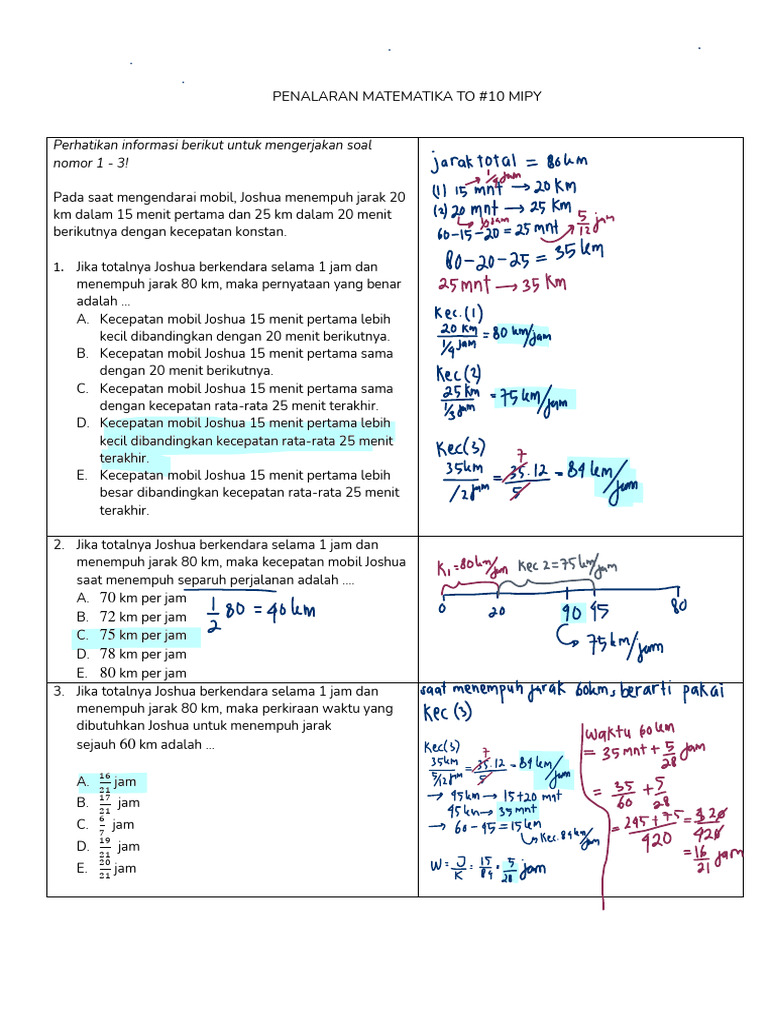 PENALARAN MATEMATIKA TO #10 MIPY
Perhatikan informasi berikut untuk mengerjakan soal
nomor 1 - 3!
Pada saat mengendarai mobil, Joshua menempuh jarak 20
km dalam 15 menit pertama dan 25 km dalam 20 menit
berikutnya dengan kecepatan konstan.
1. Jika totalnya Joshua berkendara selama 1 jam dan
menempuh jarak 80 km, maka pernyataan yang benar
adalah ...
A. Kecepatan mobil Joshua 15 menit pertama lebih
kecil dibandingkan dengan 20 menit berikutnya.
B. Kecepatan mobil Joshua 15 menit pertama sama
dengan 20 menit berikutnya.
C. Kecepatan mobil Joshua 15 menit pertama sama
dengan kecepatan rata-rata 25 menit terakhir.
D. Kecepatan mobil Joshua 15 menit pertama lebih
kecil dibandingkan kecepatan rata-rata 25 menit
terakhir.
E. Kecepatan mobil Joshua 15 menit pertama lebih
besar dibandingkan kecepatan rata-rata 25 menit
terakhir.
jarak total = 80 km
1/4 jam
(1) 15 mnt → 20 km
(2) 20 mnt → 25 km
60-15-20 = 25 mnt → 5/12 jam
80-20-25 = 35 km
25 mnt → 35 km
Kec.(1)
20 km / 1/4 jam = 80 km/jam
Kec(2)
25 km / 1/3 jam = 75 km/jam
Kec(3)
7
35km / /12 jam = 35.12 / 5 = 84 km/jam
2. Jika totalnya Joshua berkendara selama 1 jam dan
menempuh jarak 80 km, maka kecepatan mobil Joshua
saat menempuh separuh perjalanan adalah ....
A. 70 km per jam
B. 72 km per jam
C. 75 km per jam
D. 78 km per jam
E. 80 km per jam
1/2 80 = 40 km
K1 = 80 km/jam Kec 2 = 75 km/jam
0 20 40 45 80
75 km/jam
3. Jika totalnya Joshua berkendara selama 1 jam dan
menempuh jarak 80 km, maka perkiraan waktu yang
dibutuhkan Joshua untuk menempuh jarak
sejauh 60 km adalah ...
A. 16/21 jam
B. 17/21 jam
C. 6/7 jam
D. 19/21 jam
E. 20/21 jam
saat menempuh jarak 60km, berarti pakai
Kec (3)
Kec(3)
7
35km / 5/12 jam = 35.12 / 5 = 84 km/jam
→ 45km → 15+20 mnt
45km → 35 mnt
→ 60-45 = 15km
Kec. 84 km/jam
W = J/K = 15/84 = 5/28 jam
waktu 60 km
= 35 mnt + 5/28 jam
= 35/60 + 5/28
= 245 + 75 / 420 = 320/420
= 16/21 jam